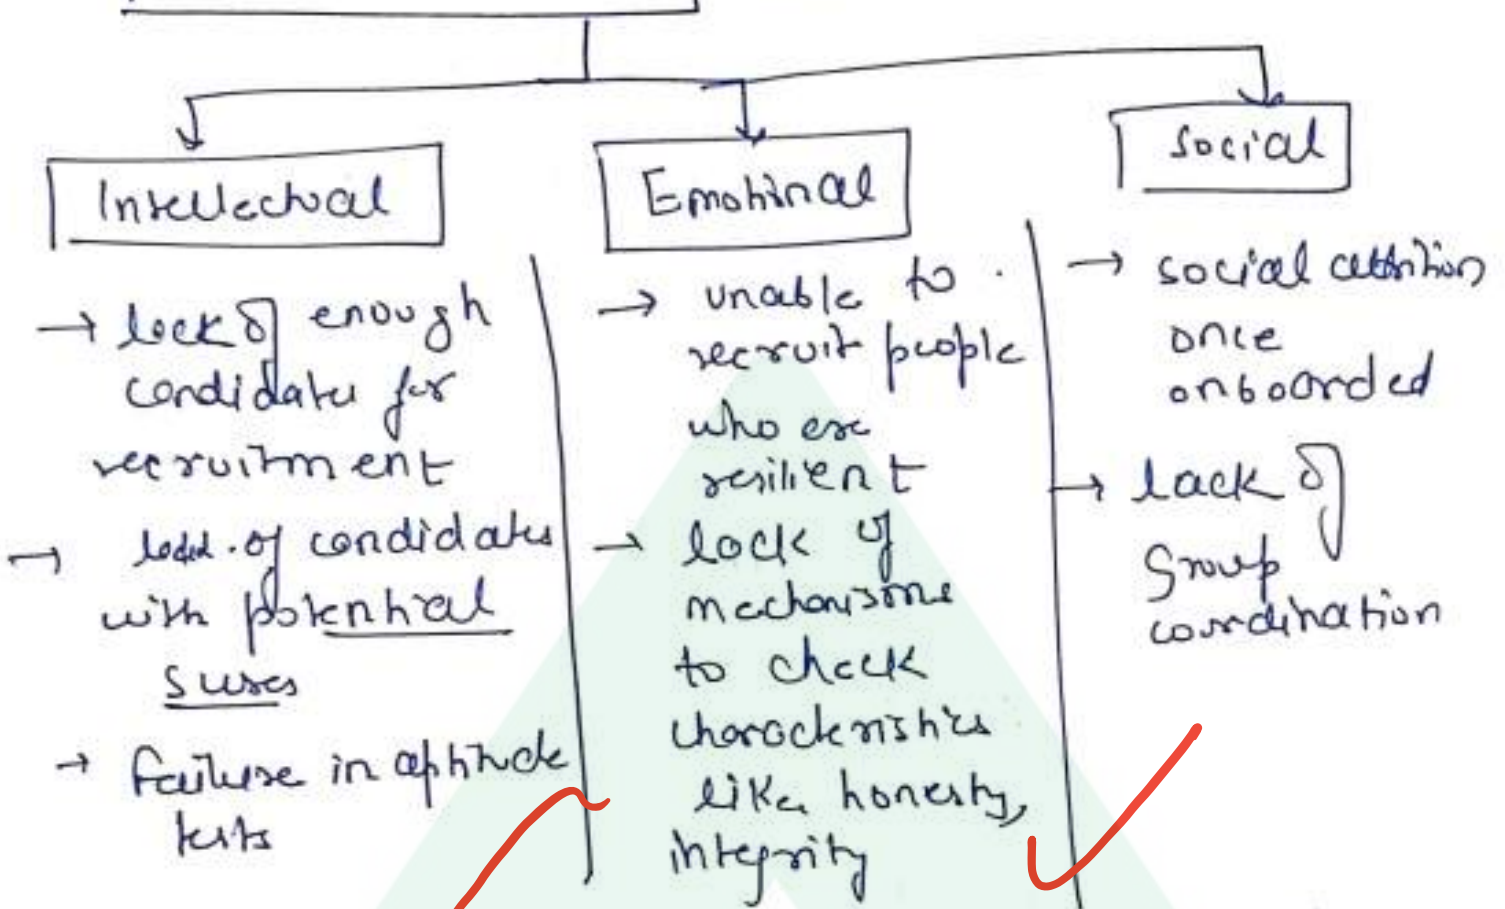 Intellectual
→ lack of enough
candidates for
recruitment
→ of candidates
with potential
→ failure in aptitude
tests
Emotional
→ unable to
recruit people
who are
resilient
→ lack of
mechanisms
to check
characteristics
like honesty,
integrity
Social
→ social attrition
once
onboarded
→ lack of
Group
coordination